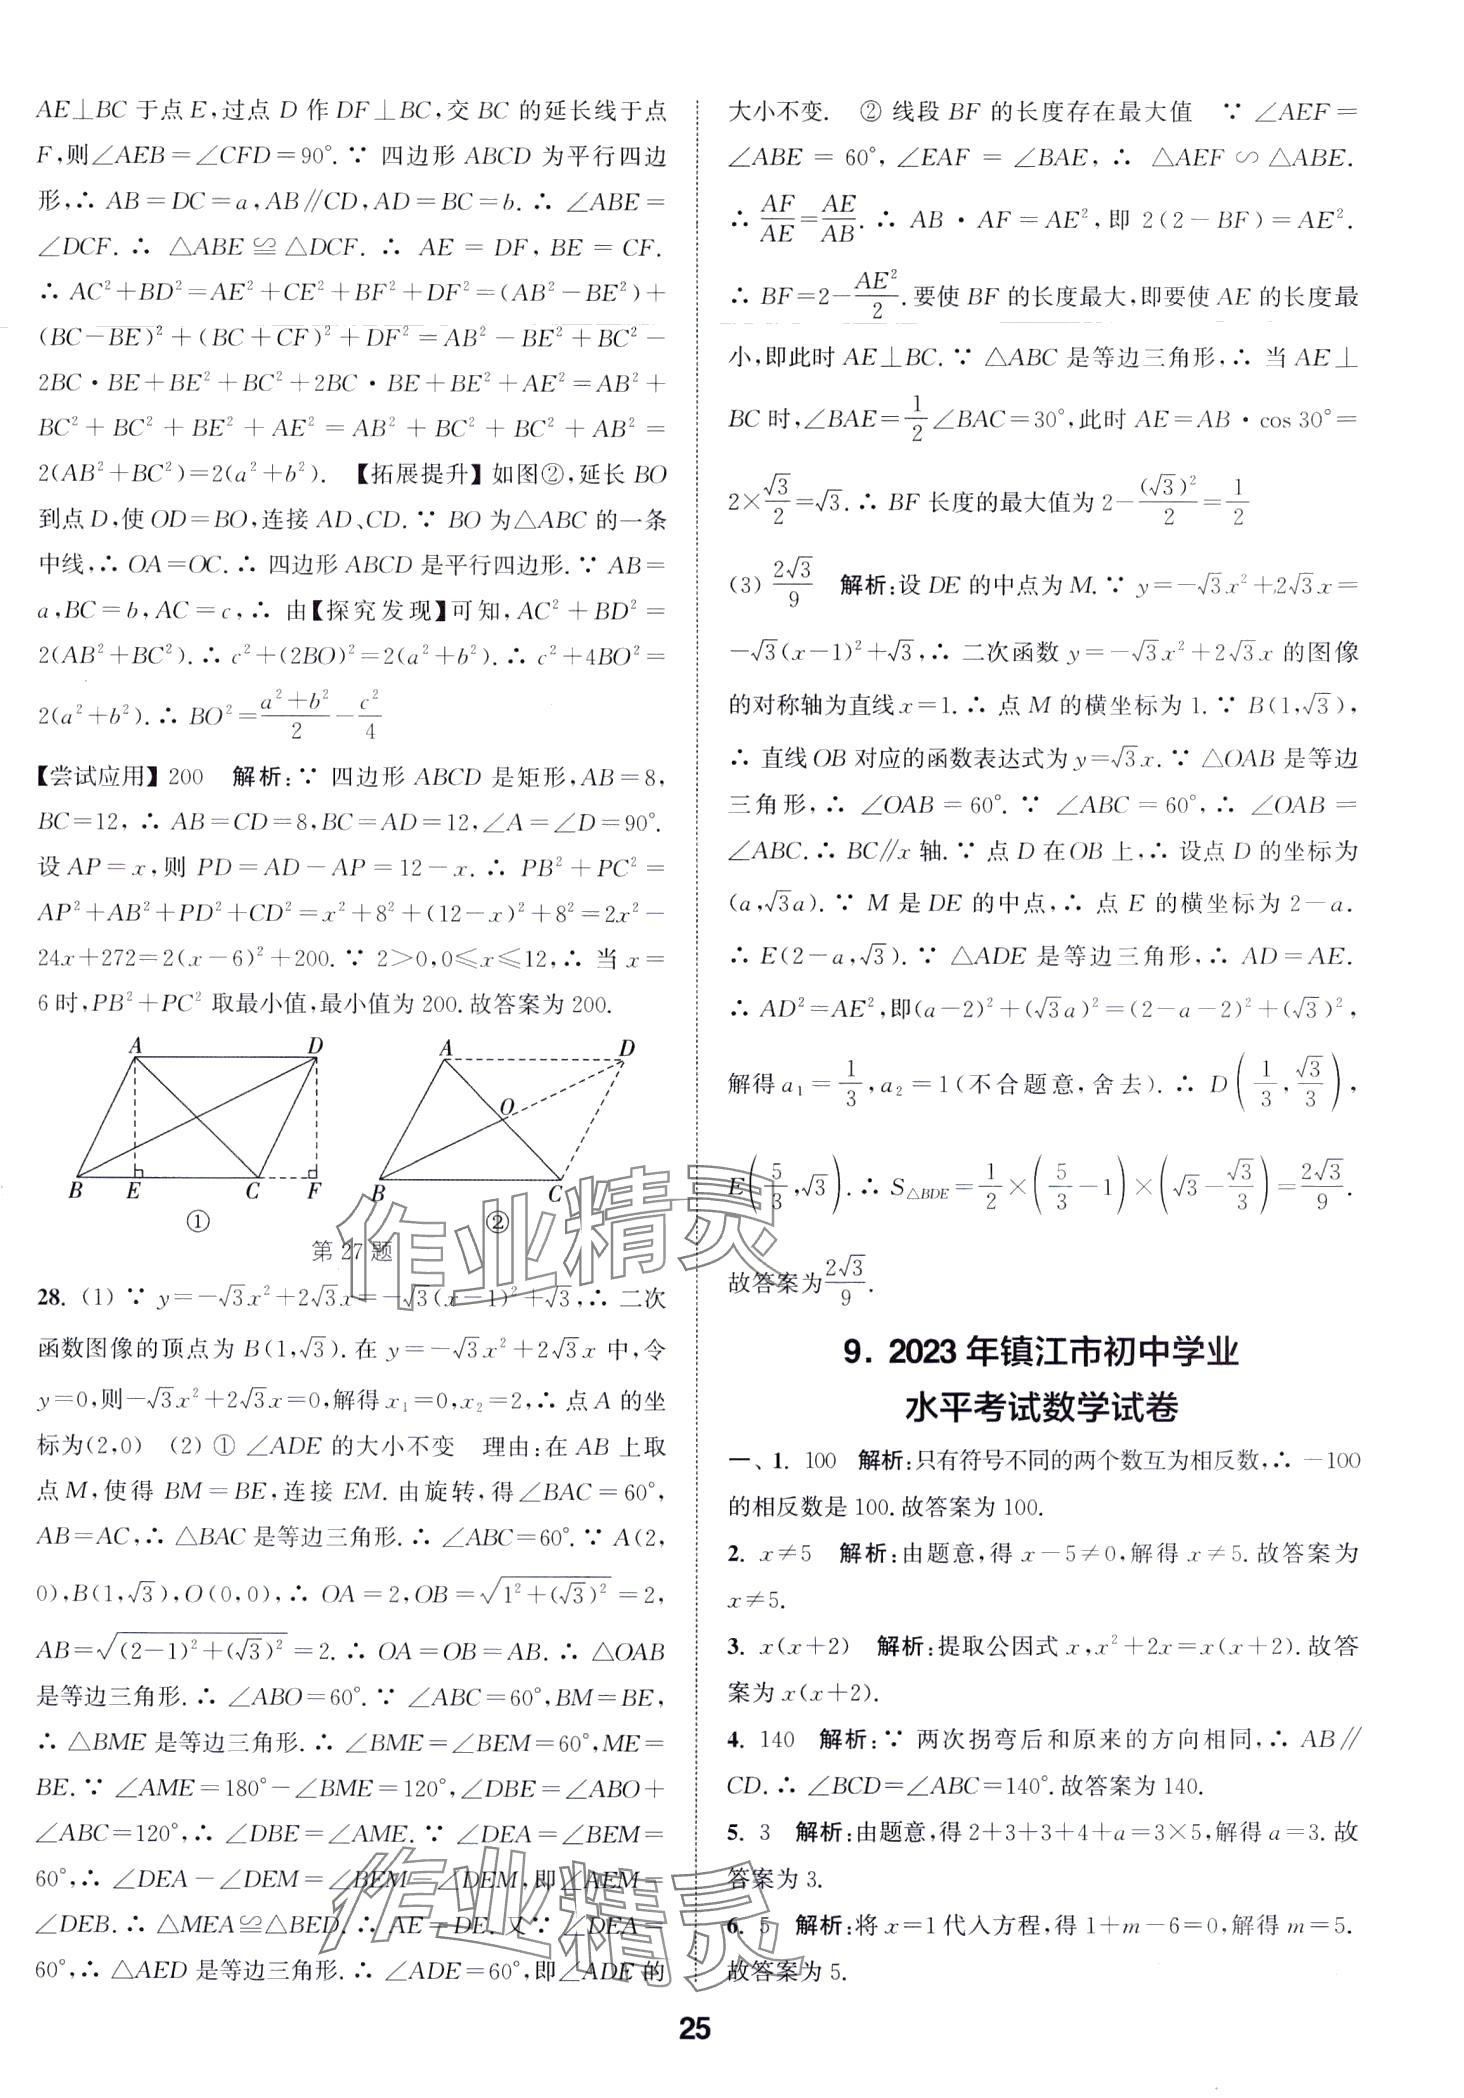 AE⊥BC 于点 E,过点 D 作 DF⊥BC,交 BC 的延长线于点
F,则∠AEB=∠CFD=90°.∵ 四边形 ABCD 为平行四边
形,∴ AB=DC=a,AB∥CD,AD=BC=b.∴ ∠ABE=
∠DCF.∴ △ABE≌△DCF.∴ AE=DF,BE=CF.
∴ AC²+BD²=AE²+CE²+BF²+DF²=(AB²-BE²)+
(BC-BE)²+(BC+CF)²+DF²=AB²-BE²+BC²-
2BC·BE+BE²+BC²+2BC·BE+BE²+AE²=AB²+
BC²+BC²+BE²+AE²=AB²+BC²+BC²+AB²=
2(AB²+BC²)=2(a²+b²). 【拓展提升】如图②,延长 BO
到点 D,使 OD=BO,连接 AD、CD.∵ BO 为△ABC 的一条
中线,∴ OA=OC.∴ 四边形 ABCD 是平行四边形.∵ AB=
a,BC=b,AC=c,∴ 由【探究发现】可知,AC²+BD²=
2(AB²+BC²).∴ c²+(2BO)²=2(a²+b²).∴ c²+4BO²=
2(a²+b²).∴ BO²=(a²+b²)/2-c²/4
【尝试应用】200 解析:∵ 四边形 ABCD 是矩形,AB=8,
BC=12,∴ AB=CD=8,BC=AD=12,∠A=∠D=90°.
设 AP=x,则 PD=AD-AP=12-x.∴ PB²+PC²=
AP²+AB²+PD²+CD²=x²+8²+(12-x)²+8²=2x²-
24x+272=2(x-6)²+200.∵ 2>0,0≤x≤12,∴ 当 x=
6 时,PB²+PC² 取最小值,最小值为 200.故答案为 200.
A D B E C F
①
A D O B C
②
第 27 题
28. (1) ∵ y=-√3x²+2√3x=-√3(x-1)²+√3,∴ 二次
函数图像的顶点为 B(1,√3).在 y=-√3x²+2√3x 中,令
y=0,则-√3x²+2√3x=0,解得 x₁=0,x₂=2,∴ 点 A 的坐
标为(2,0) (2) ① ∠ADE 的大小不变 理由:在 AB 上取
点 M,使得 BM=BE,连接 EM.由旋转,得∠BAC=60°,
AB=AC,∴ △BAC 是等边三角形.∴ ∠ABC=60°.∵ A(2,
0),B(1,√3),O(0,0),∴ OA=2,OB=√(1²+(√3)²)=2,
AB=√((2-1)²+(√3)²)=2.∴ OA=OB=AB.∴ △OAB
是等边三角形.∴ ∠ABO=60°.∵ ∠ABC=60°,BM=BE,
∴ △BME 是等边三角形.∴ ∠BME=∠BEM=60°,ME=
BE.∵ ∠AME=180°-∠BME=120°,∠DBE=∠ABO+
∠ABC=120°,∴ ∠DBE=∠AME.∵ ∠DEA=∠BEM=
60°,∴ ∠DEA-∠DEM=∠BEM-∠DEM,即∠AEM=
∠DEB.∴ △MEA≌△BED.∴ AE=DE.又∵ ∠DEA=
60°,∴ △AED 是等边三角形.∴ ∠ADE=60°,即∠ADE 的
大小不变. ② 线段 BF 的长度存在最大值 ∵ ∠AEF=
∠ABE=60°,∠EAF=∠BAE,∴ △AEF∽△ABE.
∴ AF/AE=AE/AB.∴ AB·AF=AE²,即 2(2-BF)=AE².
∴ BF=2-AE²/2.要使 BF 的长度最大,即要使 AE 的长度最
小,即此时 AE⊥BC.∵ △ABC 是等边三角形,∴ 当 AE⊥
BC 时,∠BAE=1/2∠BAC=30°,此时 AE=AB·cos 30°=
2×√3/2=√3.∴ BF 长度的最大值为 2-(√3)²/2=1/2
(3) 2√3/9 解析:设 DE 的中点为 M.∵ y=-√3x²+2√3x=
-√3(x-1)²+√3,∴ 二次函数 y=-√3x²+2√3x 的图像
的对称轴为直线 x=1.∴ 点 M 的横坐标为 1.∵ B(1,√3),
∴ 直线 OB 对应的函数表达式为 y=√3x.∵ △OAB 是等边
三角形,∴ ∠OAB=60°.∵ ∠ABC=60°,∴ ∠OAB=
∠ABC.∴ BC∥x 轴.∵ 点 D 在 OB 上,∴ 设点 D 的坐标为
(a,√3a).∵ M 是 DE 的中点,∴ 点 E 的横坐标为 2-a.
∴ E(2-a,√3).∵ △ADE 是等边三角形,∴ AD=AE.
∴ AD²=AE²,即(a-2)²+(√3a)²=(2-a-2)²+(√3)²,
解得 a₁=1/3,a₂=1(不合题意,舍去).∴ D(1/3,√3/3),
E(5/3,√3).∴ S△BDE=1/2×(5/3-1)×(√3-√3/3)=2√3/9.
故答案为2√3/9.
9. 2023 年镇江市初中学业
水平考试数学试卷
一、1. 100 解析:只有符号不同的两个数互为相反数,∴ -100
的相反数是 100.故答案为 100.
2. x≠5 解析:由题意,得 x-5≠0,解得 x≠5.故答案为
x≠5.
3. x(x+2) 解析:提取公因式 x,x²+2x=x(x+2).故答
案为 x(x+2).
4. 140 解析:∵ 两次拐弯后和原来的方向相同,∴ AB∥
CD.∴ ∠BCD=∠ABC=140°.故答案为 140.
5. 3 解析:由题意,得 2+3+3+4+a=3×5,解得 a=3.故
答案为 3.
6. 5 解析:将 x=1 代入方程,得 1+m-6=0,解得 m=5.
故答案为 5.
25
作业精灵
作业精灵